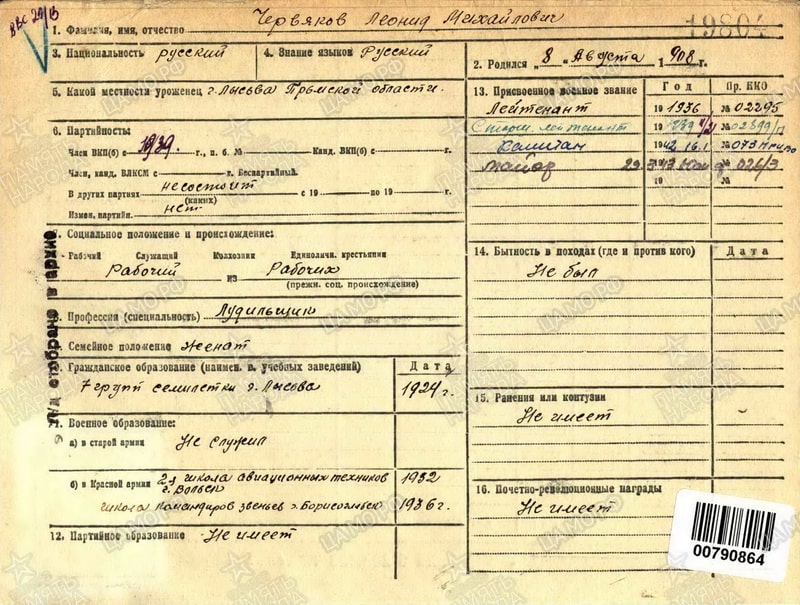 ВВС 29/В
1. Фамилия, имя, отчество Червяков Леонид Михайлович
19804
3. Национальность русский
4. Знание языков Русский
2. Родился „8" „Августа 1908 г.
5. Какой местности уроженец г. Лысьва Прмской области.
6. Партийность:
Член ВКП(б) с 1939. г., п. б. № Канд. ВКП(б) с г.
Член, канд. ВЛКСМ с г. Беспартийный.
В других партиях не состоит с 19 по 19 г.
(каких)
Измен. партийн. нет.
7. Социальное положение и происхождение:
Рабочий Служащий Колхозник Единоличн. крестьянин
Рабочий из Рабочих
(прежн. соц. происхождение)
8. Профессия (специальность) Лудильщик
9. Семейное положение женат
10. Гражданское образование (наимен. в. учебных заведений)
Дата
7 групп семилетки г. Лысьва
1924 г.
11. Военное образование:
а) в старой армии Не служил
б) в Красной армии 2-я школа авиационных техников
г. Вольск
1932
школа командиров звеньев г. Борисоглебск
1936 г.
12. Партийное образование Не имеет
13. Присвоенное военное звание
Год
Пр. НКО
Лейтенант 1936 № 02295
Старш. лейтенант № 02899/п
Капитан 1942 16.1 № 073
Майор 29.3.43 № 026/3
19 №
14. Бытность в походах (где и против кого)
Дата
Не был
15. Ранения или контузии
Не имеет
16. Почетно-революционные награды
Не имеет
00790864